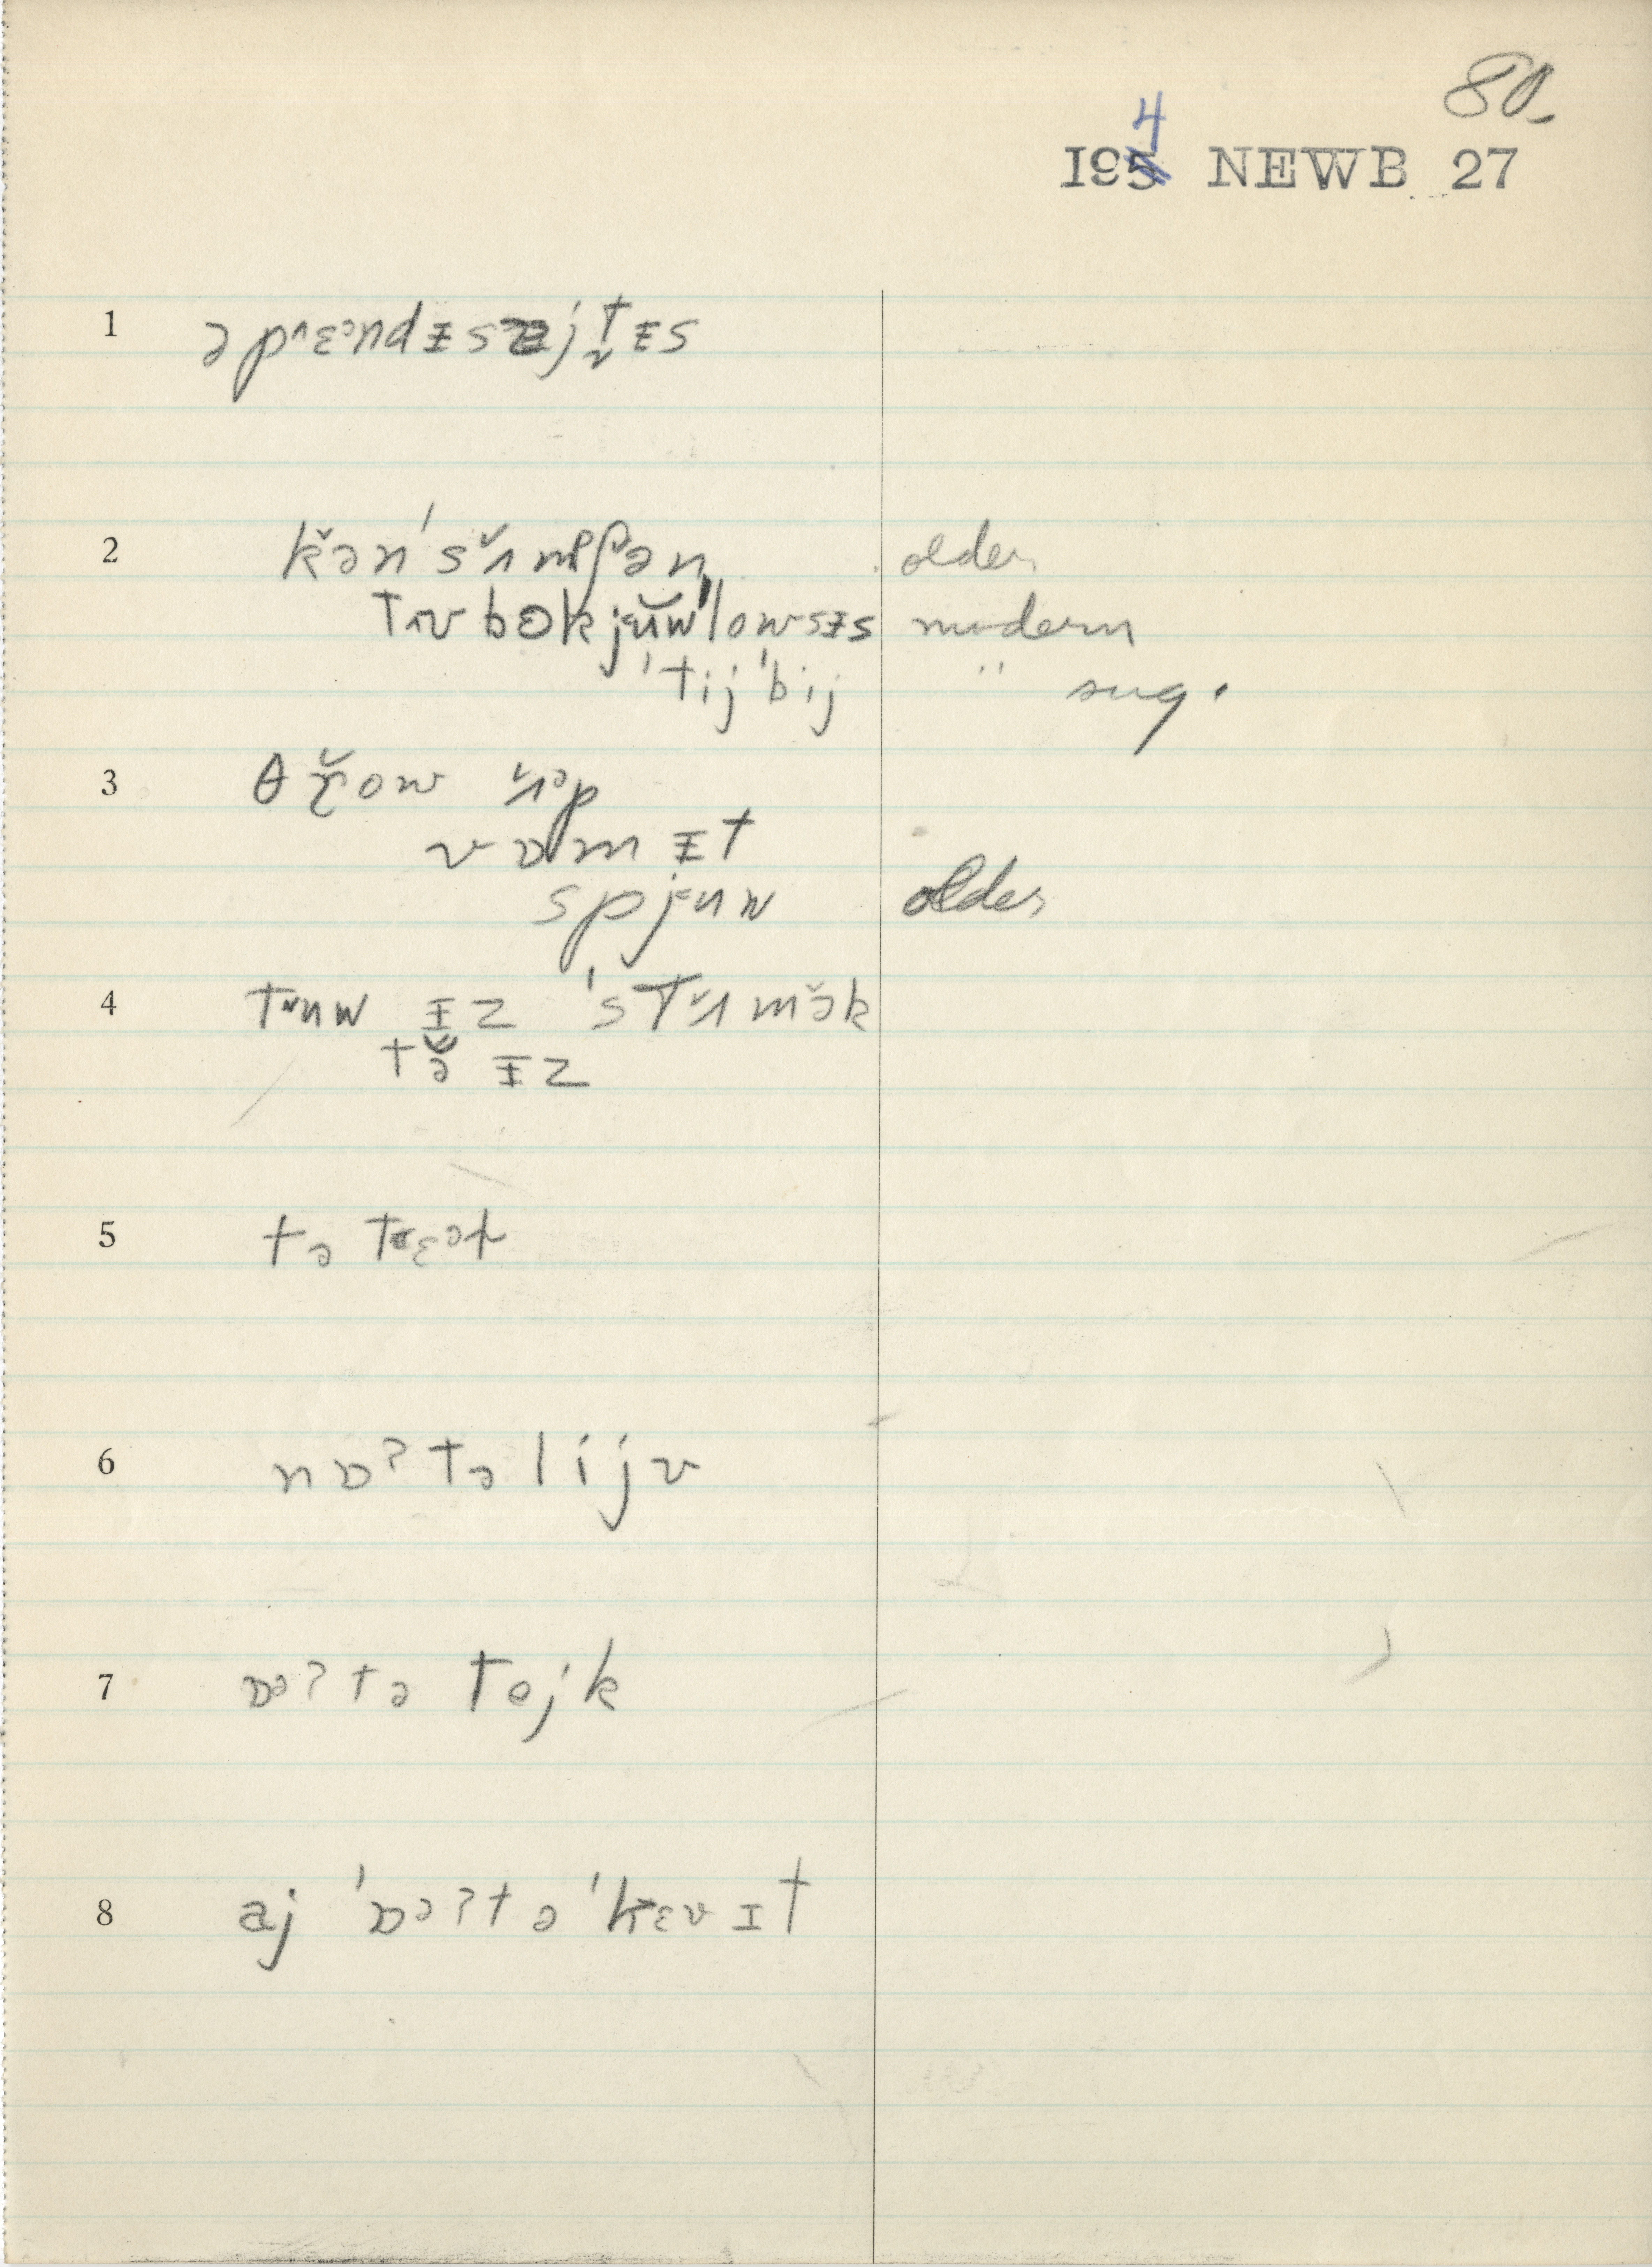 80
194 NEWB 27
1 əpʌɛᵊndᵻsajt̬ᵻs
2 kə̆n'sʌ̆mpʃən older
tɪʊbɵkjʉ̆w'lowsᵻs modern
'tij'bij " sug.
3 θr̆ow ʌ̆ᵊp
vɒmᵻt
spjʉw older
4 tʉw ᵻz 'stʌ̆mə̆k
tə̆ ᵻz
5 tə trɛət
6 nɒʔtəlijv
7 ɒəʔtə tejk
8 aj 'ɒəʔtə 'hɛvɪt